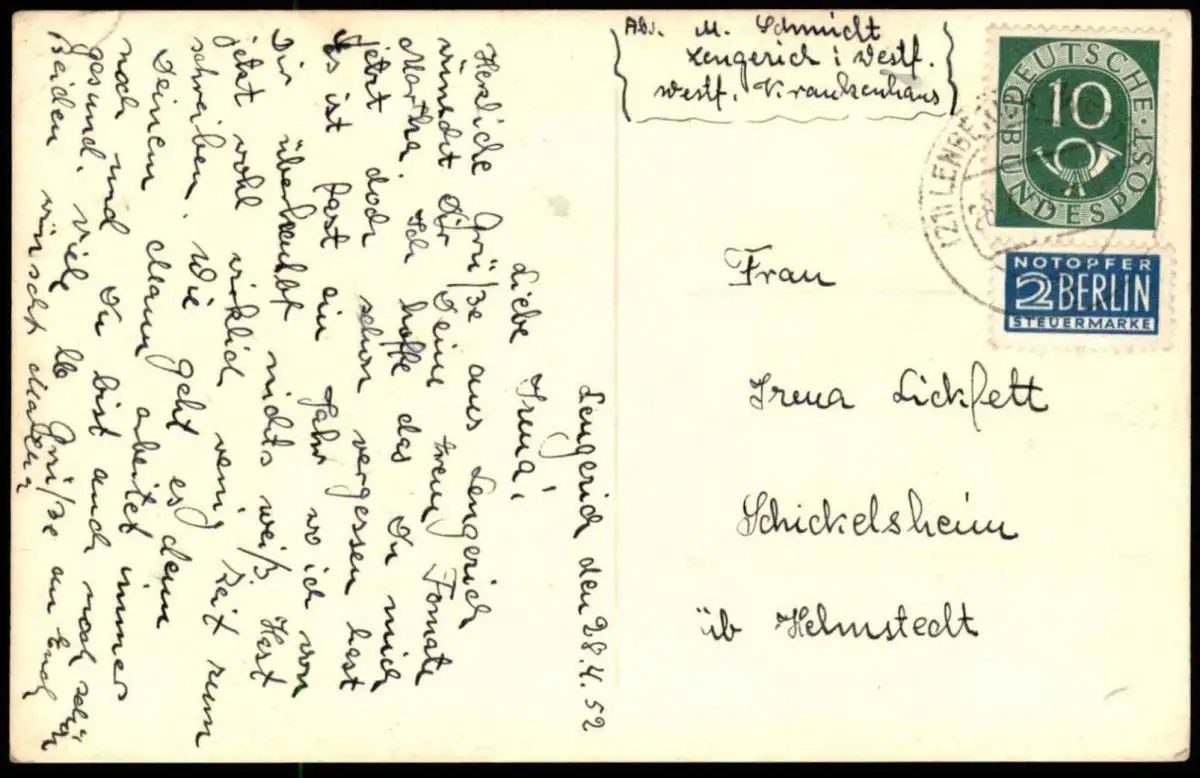 Lengerich den 28.4.52
Liebe Irma!
Herzliche Grüße aus Lengerich
wünscht Dir Deine treue Tomate
Martha. Ich hoffe das Du mich
jetzt doch schon vergessen hast
Es ist fast ein Jahr wo ich von
Dir überhaubt nichts weiß. Hast
jetzt wohl wirklich wenig Zeit zum
schreiben. Wie geht es denn
Deinem Mann arbeitet immer
noch und Du bist auch noch schön
gesund. Viele lb Grüße an Euch
beiden wünscht
Abs. M. Schmidt
Lengerich i Westf.
Westf. Krankenhaus
DEUTSCHE BUNDESPOST
10
NOTOPFER
2 BERLIN
STEUERMARKE
Frau
Irma Lickfett
Schickelsheim
üb Helmstedt